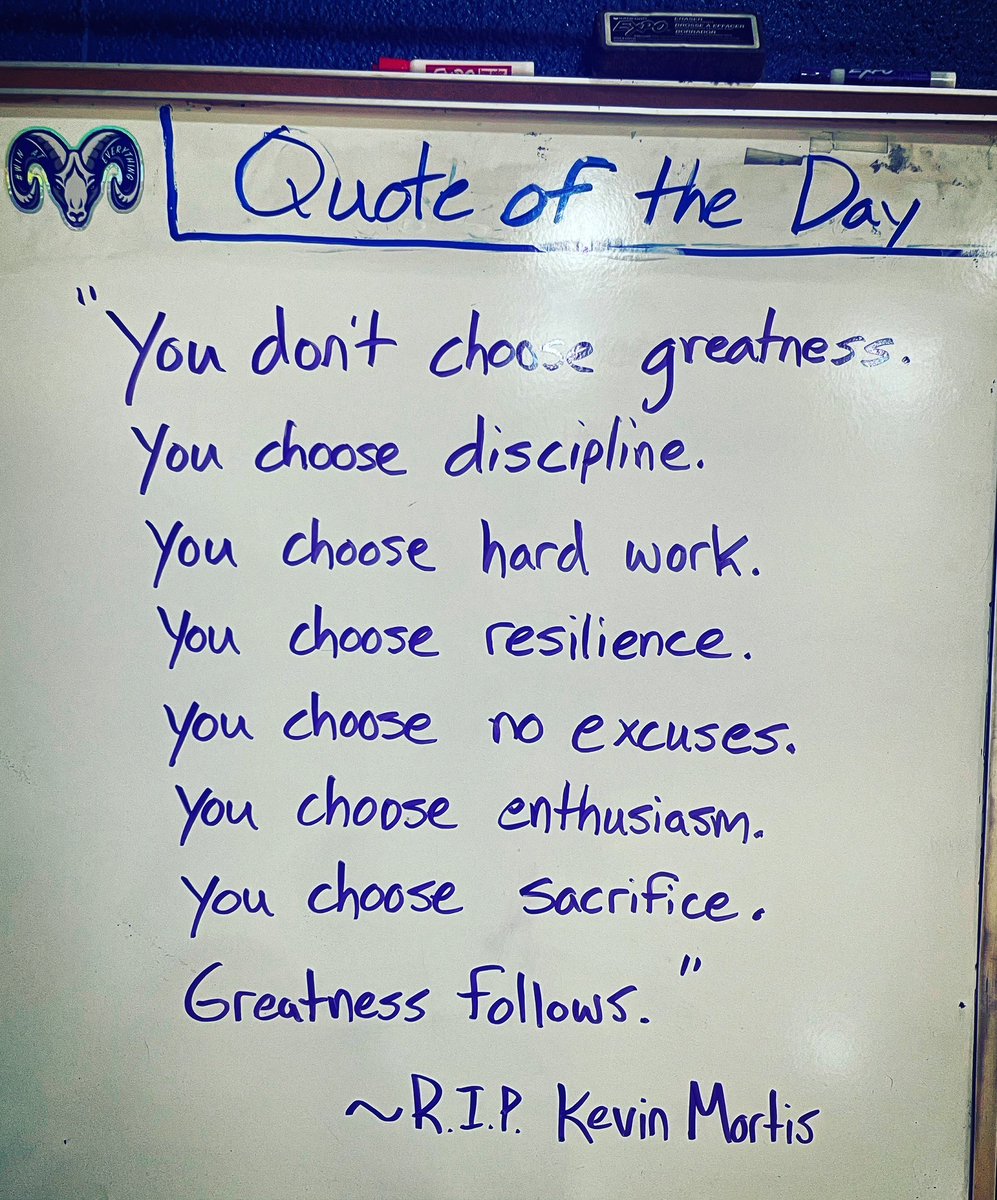 EXPO
ERASER
BROSSE À EFFACER
BORRADOR
EXPO
#WIN
EVERYTHING
Quote of the Day
"You don't choose greatness.
You choose discipline.
You choose hard work.
You choose resilience.
You choose no excuses.
You choose enthusiasm.
You choose sacrifice.
Greatness follows."
~R.I.P. Kevin Mortis